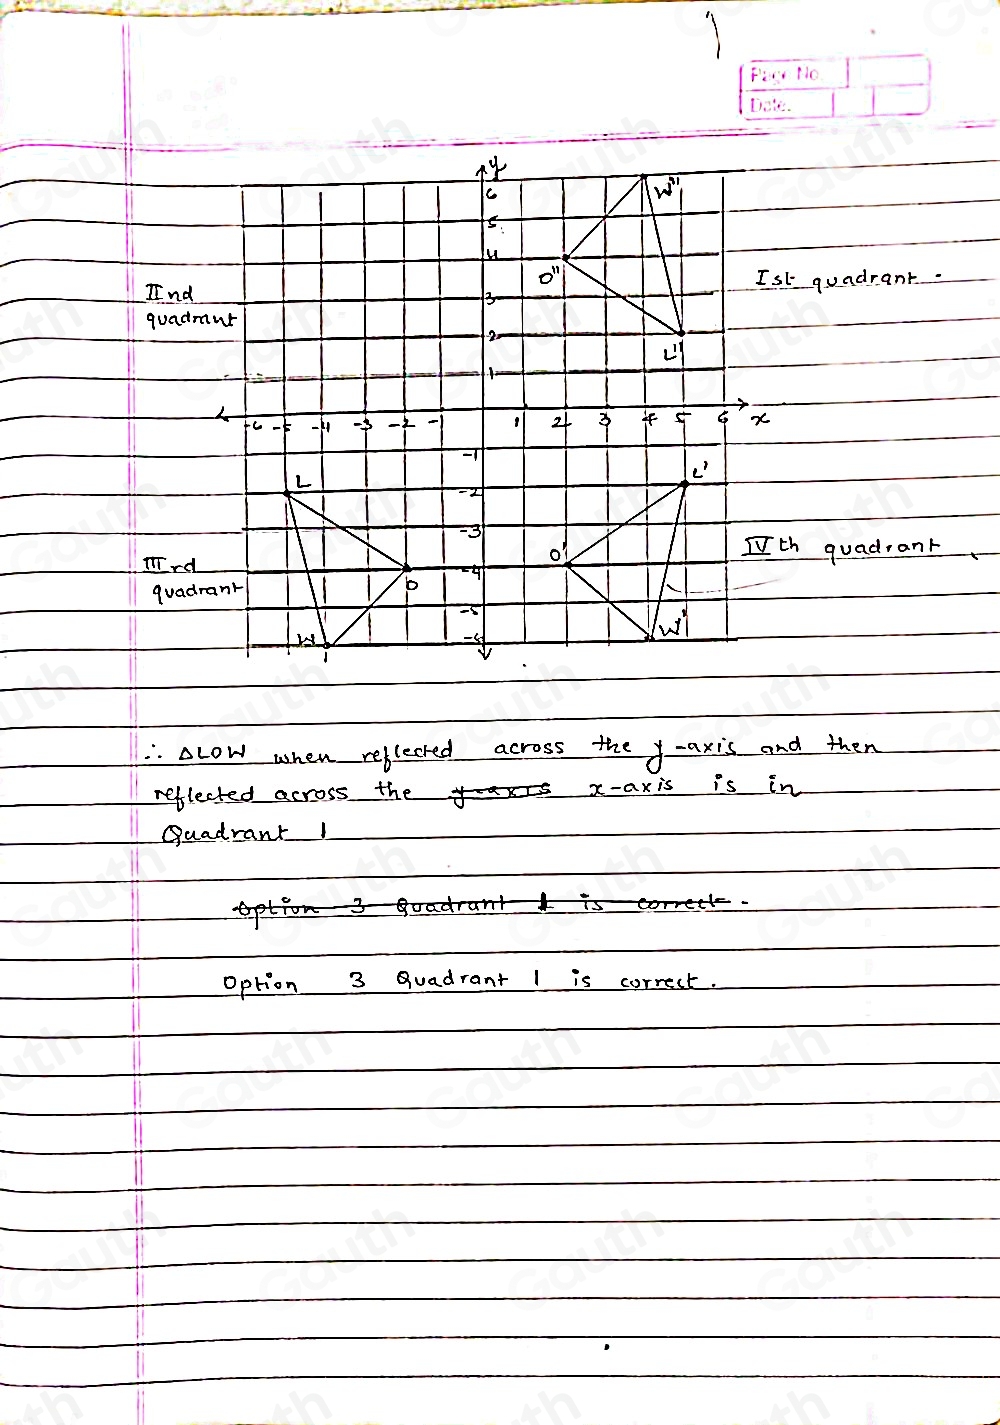 Page No.
Date.
y
6
5
4
3
2
1
W"
O"
L"
IInd
quadrant
Ist quadrant.
-6 -5 -4 -3 -2 -1 1 2 3 4 5 6 x
-1
-2
-3
-4
-5
-6
L
O
W
L'
O'
W'
IIIrd
quadrant
IVth quadrant
∴ ΔLOW when reflected across the y-axis and then
reflected across the y-axis x-axis is in
Quadrant 1
Option 3 Quadrant 1 is correct.
Option 3 Quadrant 1 is correct.
Gauth